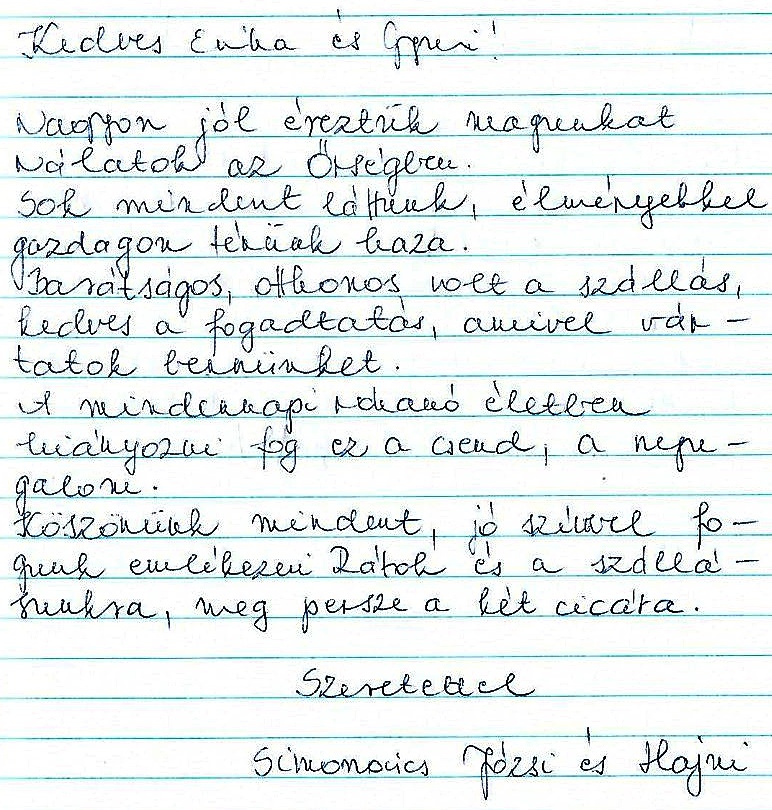 Kedves Erika és Gyuri!
Nagyon jól éreztük magunkat
Nálatok az Őrségben.
Sok mindent láttunk, élményekkel
gazdagon térünk haza.
Barátságos, otthonos volt a szállás,
kedves a fogadtatás, amivel vár-
tatok bennünket.
A mindennapi rohanó életben
hiányozni fog ez a csend, a nyu-
galom.
Köszönünk mindent, jó szívvel fo-
gunk emlékezni Rátok és a szállá-
sunkra, meg persze a két cicára.
Szeretettel
Simonovics Józsi és Hajni